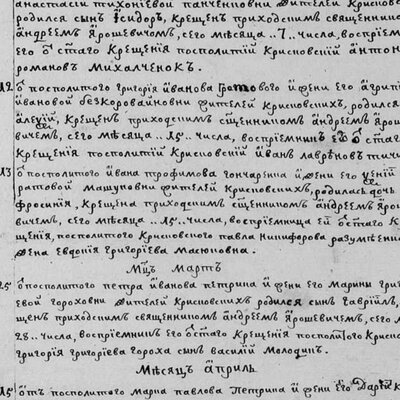 анастасіи тихоніевои панченковны жителеи Крисковс
родился сынъ Ісидоръ, Крещенъ приходскимъ священнико
андреемъ Ярошевичомъ, сего мѣсяца ..7.. числа, воспріем
его ѿ стаго Крещенія посполитіи Крисковскіи антон
романовъ Михалченокъ.
12 ѿ посполитого григорія іванова и жени его агрипи
івановой безкоровайновни жителей Крисковскихъ, родился
алеѯій, Крещенъ приходскимъ сщенникомъ андреемъ ярош
вичемъ, сего мѣсяца ..15.. числа, воспріемникъ его ѿ стаг
Крещенія посполитій Крисковскій іванъ лавреновъ
13 ѿ посполитого івана трофимова гончаренка и жени его
жителей Крисковскихъ, родилась дочь
фросинія, Крещена приходскимъ сщенникомъ андреемъ яро
вичемъ, сего мѣсяца ..15.. числа, воспріемница ей ѿ стаго К
щенія, посполитого Крисковского павла никифорова
жена евдокія григоріева
Мцъ Мартъ
25 ѿ посполитого петра іванова петрика и жени его марини григ
евой гороховни жителей Крисковскихъ родился сынъ гавріилъ,
щенъ приходскимъ священникомъ андреемъ ярошевичемъ, сего м
28.. числа, воспріемникъ его ѿ стаго Крещенія посполитого Криско
григорія григоріева гороха сынъ василій
Мѣсяцъ априль
15 ѿтъ посполитого марка павлова петрика и жени его